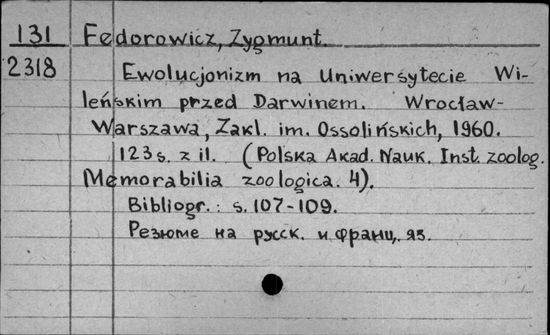 131 Fedorowicz, Zygmunt.
2318 Ewolucjonizm na Uniwersytecie Wi-
leńskim przed Darwinem. Wrocław-
Warszawa, Zakl. im. Ossolińskich, 1960.
123 s. z il. (Polska Akad. Nauk. Inst. zoolog.
Memorabilia zoologica. 4).
Bibliogr.: s. 107-109.
Резюме на русск. и франц. яз.